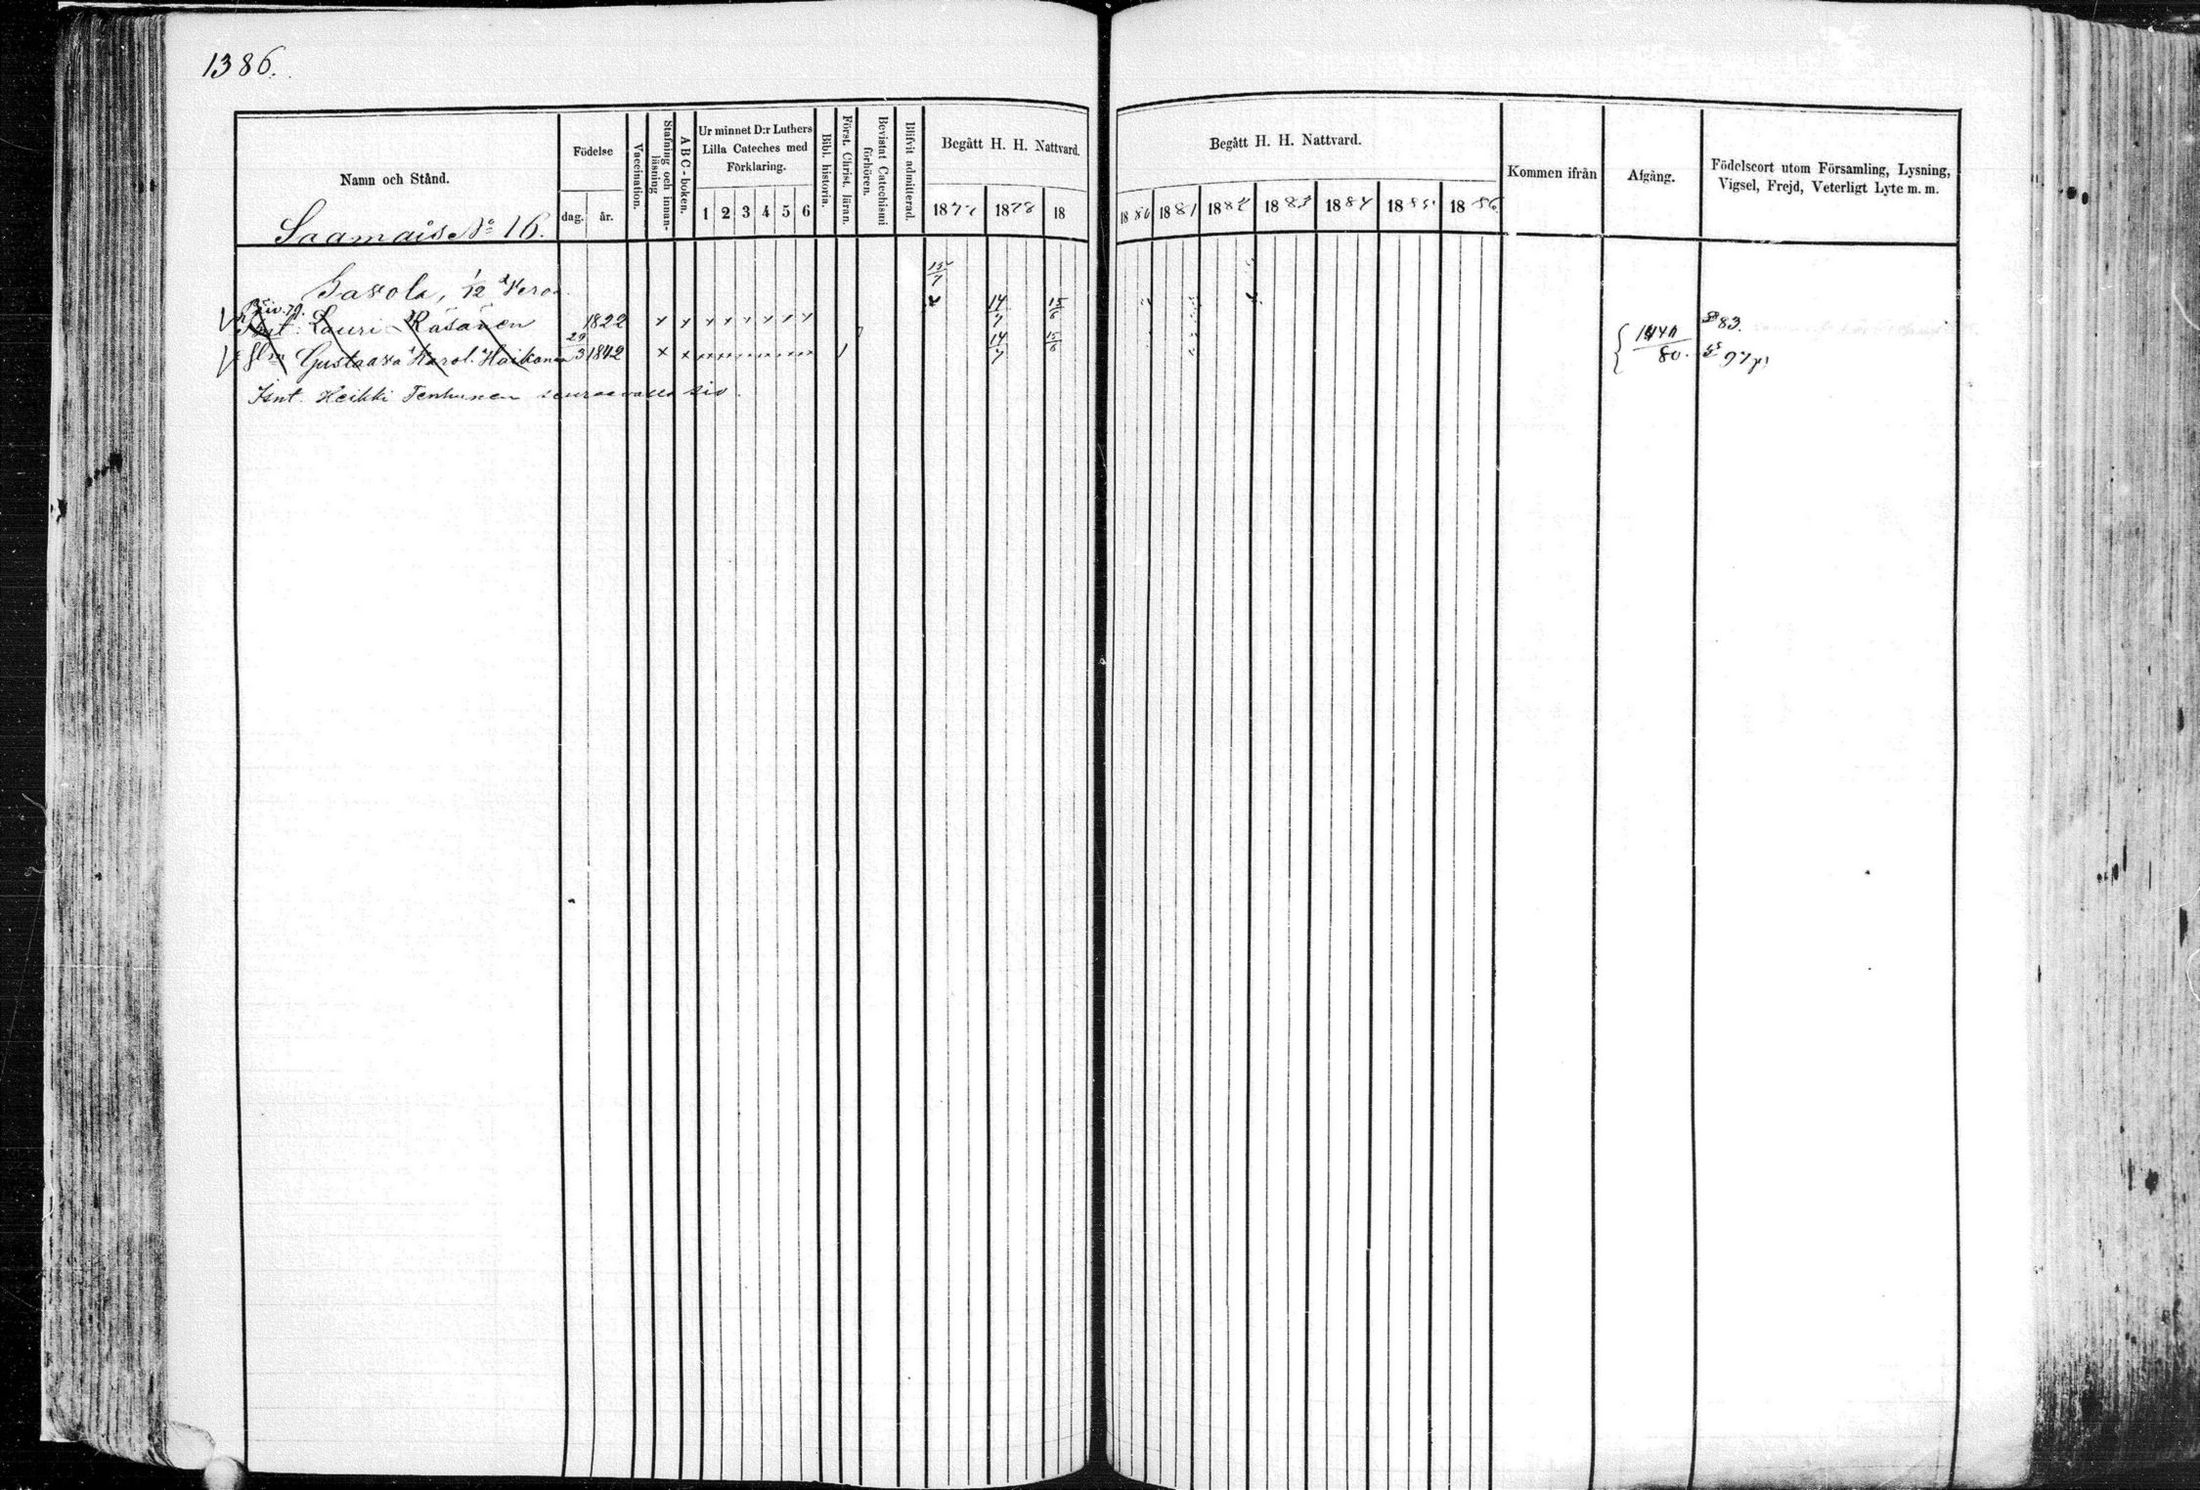 1386.
Namn och Stånd.
Födelse
dag.
år.
Vaccination.
Stafning och innanläsning
A B C - boken.
Ur minnet D:r Luthers
Lilla Cateches med
Förklaring.
1 2 3 4 5 6
Bibl. historia.
Först. Christ. läran.
Bevistat Catechismi
förhören.
Blifvit admitterad.
Begått H. H. Nattvard.
1877 1878 18
Begått H. H. Nattvard.
1880 1881 1882 1883 1884 1885 1886
Kommen ifrån
Afgång.
Födelseort utom Församling, Lysning,
Vigsel, Frejd, Veterligt Lyte m. m.
Saamais No 16.
Savola, 1/12
15/7
Lauri Räsänen 1822 14/7 15/6
83.
Gustaava Karol. Haikonen 29/3 1842 14/7 15/6
80. 97
Isnt. Heikki Tenhunen seuraavalla siv.